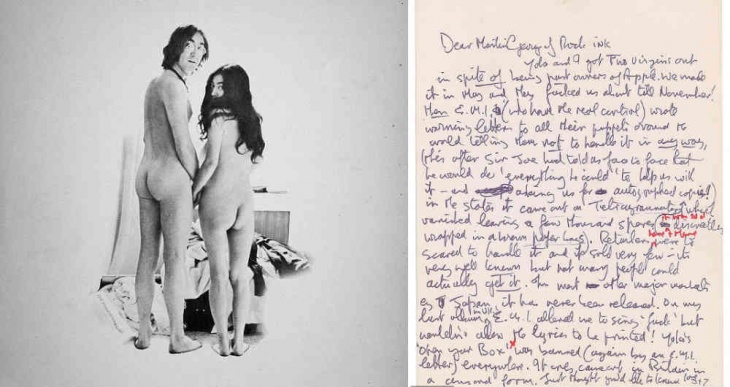 Dear Martin George of Rock ink
Yoko and I got Two Virgins out
in spite of being part owners of Apple. We made
it in May and they fucked us about till November!
Then E.M.I. (who have the real control) wrote
warning letters to all their puppets around the
world telling them not to handle it in any way,
(this after Sir Joe had told us face to face that
he would do 'everything he could' to help us with
it - and asking us for autographed copies!)
in the states it came out on Tetragrammaton (which
vanished leaving a few thousand spares
wrapped in a brown paper bag). Retailers were to
scared to handle it and it sold very few - its
very well known but not many people could
actually get it. In most other major markets
eg Japan, it has never been released. On my
last album E.M.I. allowed me to sing 'fuck' but
wouldn't allow the lyrics to be printed! Yoko's
'Open your Box' was banned (again by an E.M.I.
letter) everywhere. It only came out in Britain in
a censored form. Just thought you'd like to know